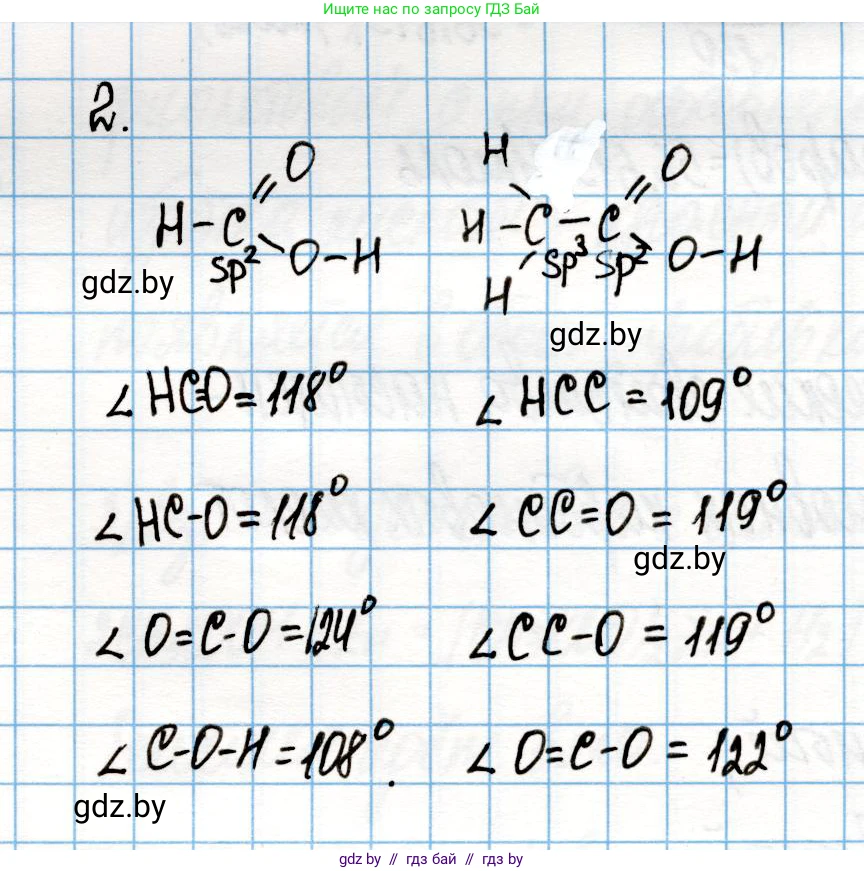 Ищите нас по запросу ГДЗ Бай
2.
O
H-C
sp²
O-H
H
O
H-C-C
sp³ sp²
O-H
H
gdz.by
gdz.by
∠HC=O=118°
∠HCC=109°
∠HC-O=118°
∠CC=O=119°
gdz.by
∠O=C-O=124°
∠CC-O=119°
∠C-O-H=108°.
∠O=C-O=122°
gdz.by
gdz by // гдз бай // гдз by